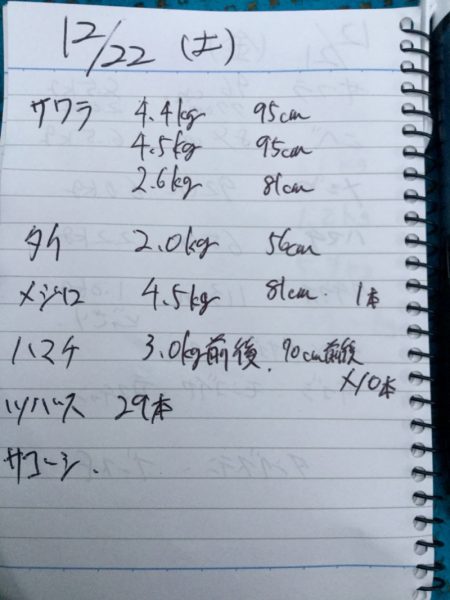 12/22 (土)
サワラ 4.4kg 95cm
4.5kg 95cm
2.6kg 81cm
タイ 2.0kg 56cm
メジロ 4.5kg 81cm. 1本
ハマチ 3.0kg前後. 70cm前後
×10本
ツバス 29本
サゴシ.